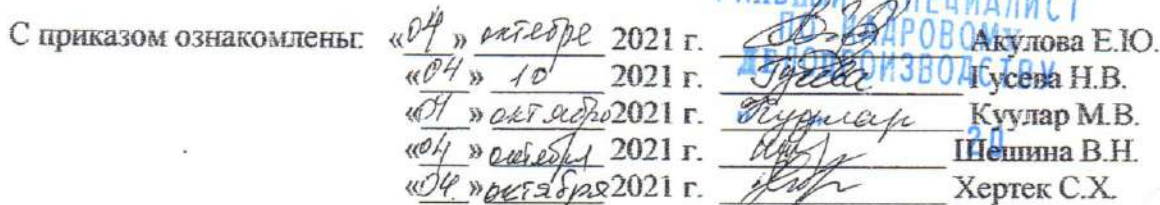 СПЕЦИАЛИСТ
ПО КАДРОВОМУ
ДЕЛОПРОИЗВОДСТВУ
С приказом ознакомлены: «04» октября 2021 г. Акулова Е.Ю.
«04» 10 2021 г. Гусева Гусева Н.В.
«04» октября 2021 г. Куулар Куулар М.В.
«04» октября 2021 г. Шешина В.Н.
«04» октября 2021 г. Хертек С.Х.
20